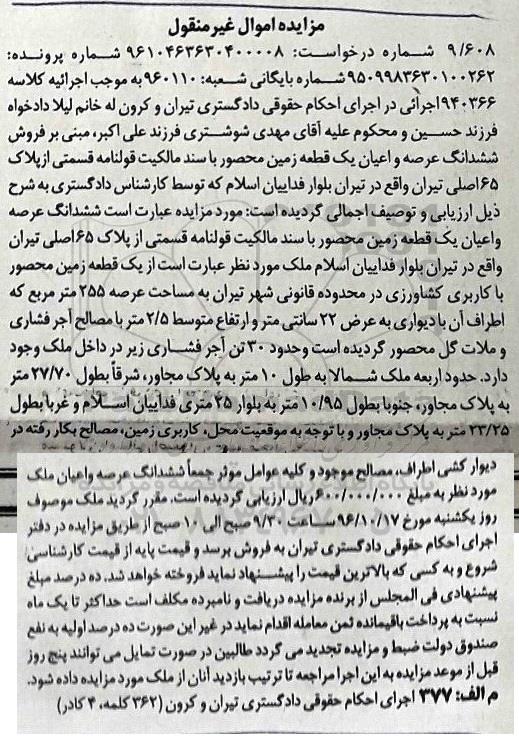 مزایده اموال غیرمنقول
۹/۶۰۸ شماره درخواست: ۹۶۱۰۴۶۳۶۳۰۴۰۰۰۰۸ شماره پرونده:
۹۵۰۹۹۸۳۶۳۰۱۰۰۲۶۲ شماره بایگانی شعبه: ۹۶۰۱۱۰ به موجب اجرائیه کلاسه
۹۴۰۳۶۶ اجرائی در اجرای احکام حقوقی دادگستری تیران و کرون له خانم لیلا دادخواه
فرزند حسین و محکوم علیه آقای مهدی شوشتری فرزند علی اکبر، مبنی بر فروش
ششدانگ عرصه و اعیان یک قطعه زمین محصور با سند مالکیت قولنامه قسمتی از پلاک
۶۵ اصلی تیران واقع در تیران بلوار فداییان اسلام که توسط کارشناس دادگستری به شرح
ذیل ارزیابی و توصیف اجمالی گردیده است: مورد مزایده عبارت است ششدانگ عرصه
واعیان یک قطعه زمین محصور با سند مالکیت قولنامه قسمتی از پلاک ۶۵ اصلی تیران
واقع در تیران بلوار فداییان اسلام ملک مورد نظر عبارت است از یک قطعه زمین محصور
با کاربری کشاورزی در محدوده قانونی شهر تیران به مساحت عرصه ۲۵۵ متر مربع که
اطراف آن با دیواری به عرض ۲۲ سانتی متر و ارتفاع متوسط ۲/۵ متر با مصالح آجر فشاری
و ملات گل محصور گردیده است وحدود ۳۰ تن آجر فشاری زیر در داخل ملک وجود
دارد. حدود اربعه ملک شمالا به طول ۱۰ متر به پلاک مجاور، شرقاً بطول ۲۷/۷۰ متر
به پلاک مجاور، جنوبا بطول ۱۰/۹۵ متر به بلوار ۴۵ متری فداییان اسلام و غربا بطول
۲۳/۲۵ متر به پلاک مجاور و با توجه به موقعیت محل، کاربری زمین، مصالح بکار رفته در
دیوار کشی اطراف، مصالح موجود و کلیه عوامل موثر جمعاً ششدانگ عرصه واعیان ملک
مورد نظر به مبلغ ۶۰۰/۰۰۰/۰۰۰ ریال ارزیابی گردیده است. مقرر گردید ملک موصوف
روز یکشنبه مورخ ۹۶/۱۰/۱۷ ساعت ۹/۳۰ صبح الی ۱۰ صبح از طریق مزایده در دفتر
اجرای احکام حقوقی دادگستری تیران به فروش برسد و قیمت پایه از قیمت کارشناسی
شروع و به کسی که بالاترین قیمت را پیشنهاد نماید فروخته خواهد شد. ده درصد مبلغ
پیشنهادی فی المجلس از برنده مزایده دریافت و نامبرده مکلف است حداکثر تا یک ماه
نسبت به پرداخت باقیمانده ثمن معامله اقدام نماید در غیر این صورت ده درصد اولیه به نفع
صندوق دولت ضبط و مزایده تجدید می گردد طالبین در صورت تمایل می توانند پنج روز
قبل از موعد مزایده به این اجرا مراجعه تا ترتیب بازدید آنان از ملک مورد مزایده داده شود.
م الف: ۳۷۷ اجرای احکام حقوقی دادگستری تیران و کرون (۳۶۲ کلمه، ۴ کادر)